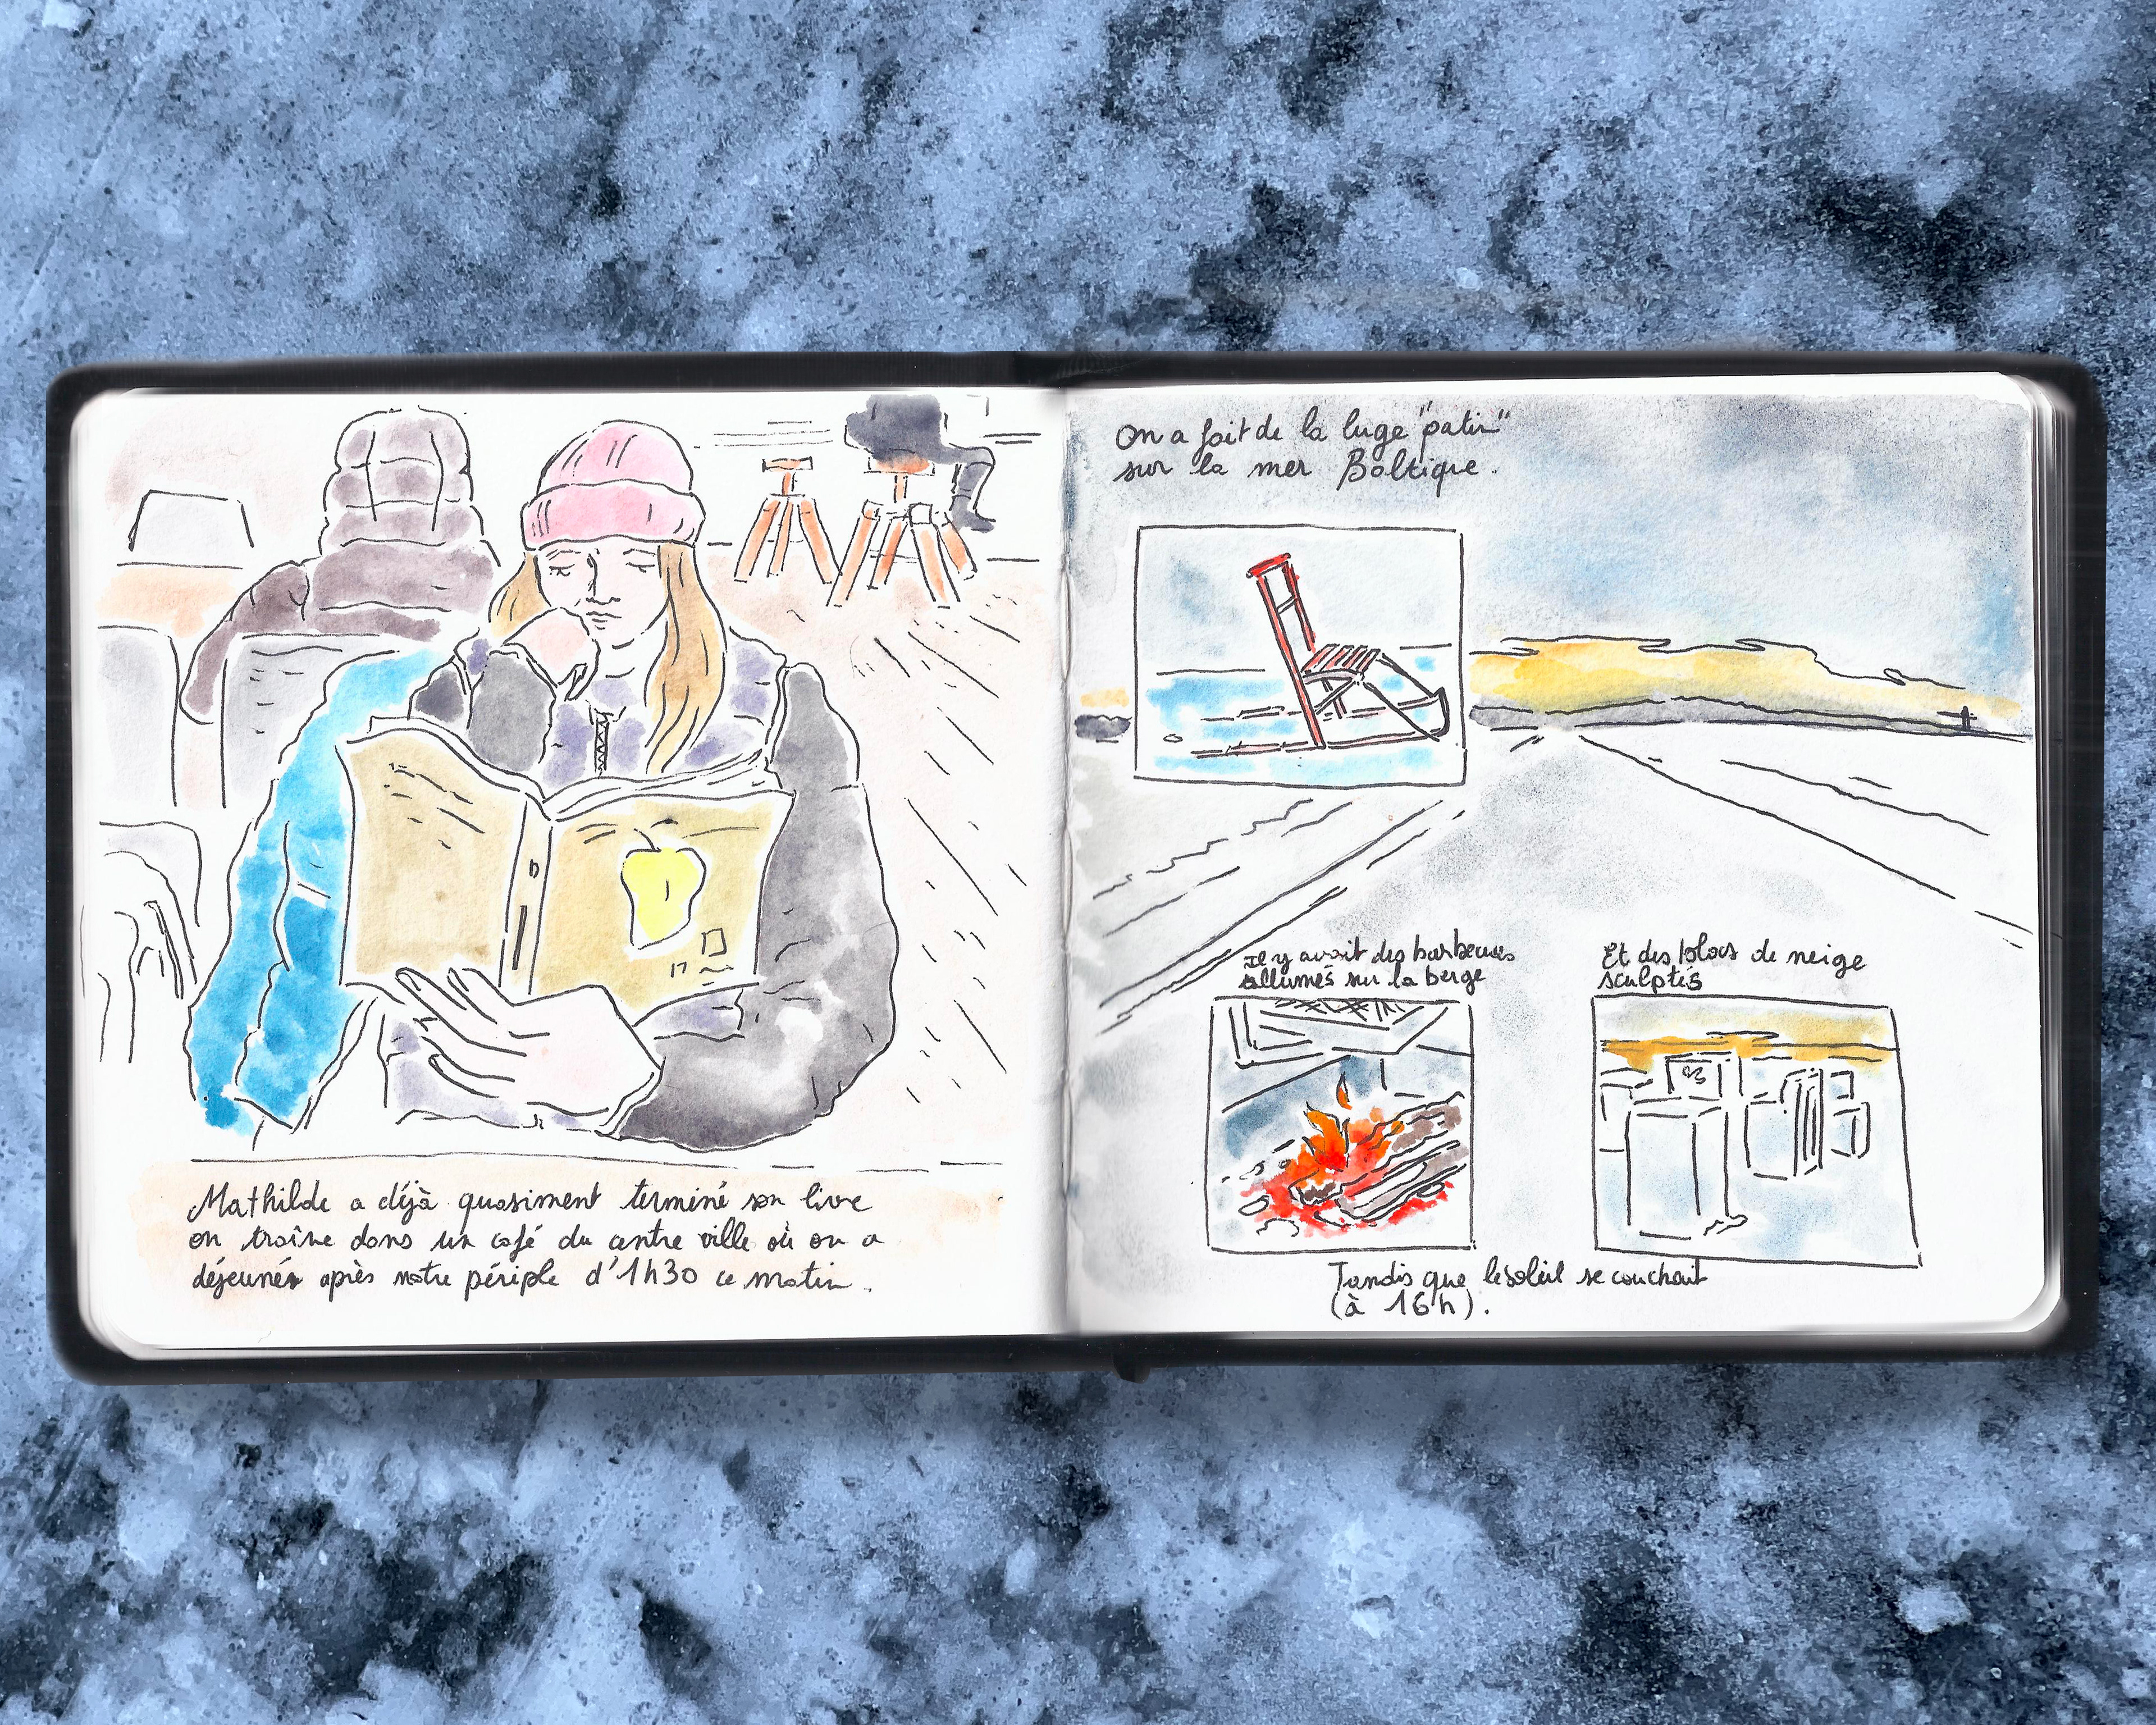 Mathilde a déjà quasiment terminé son livre
on traîne dans un café du centre ville où on a
déjeuner après notre périple d'1h30 ce matin.
On a fait de la luge "patin"
sur la mer Baltique.
Il y avait des barbecues
allumés sur la berge
Et des blocs de neige
sculptés
Tandis que le soleil se couchait
(à 16h).